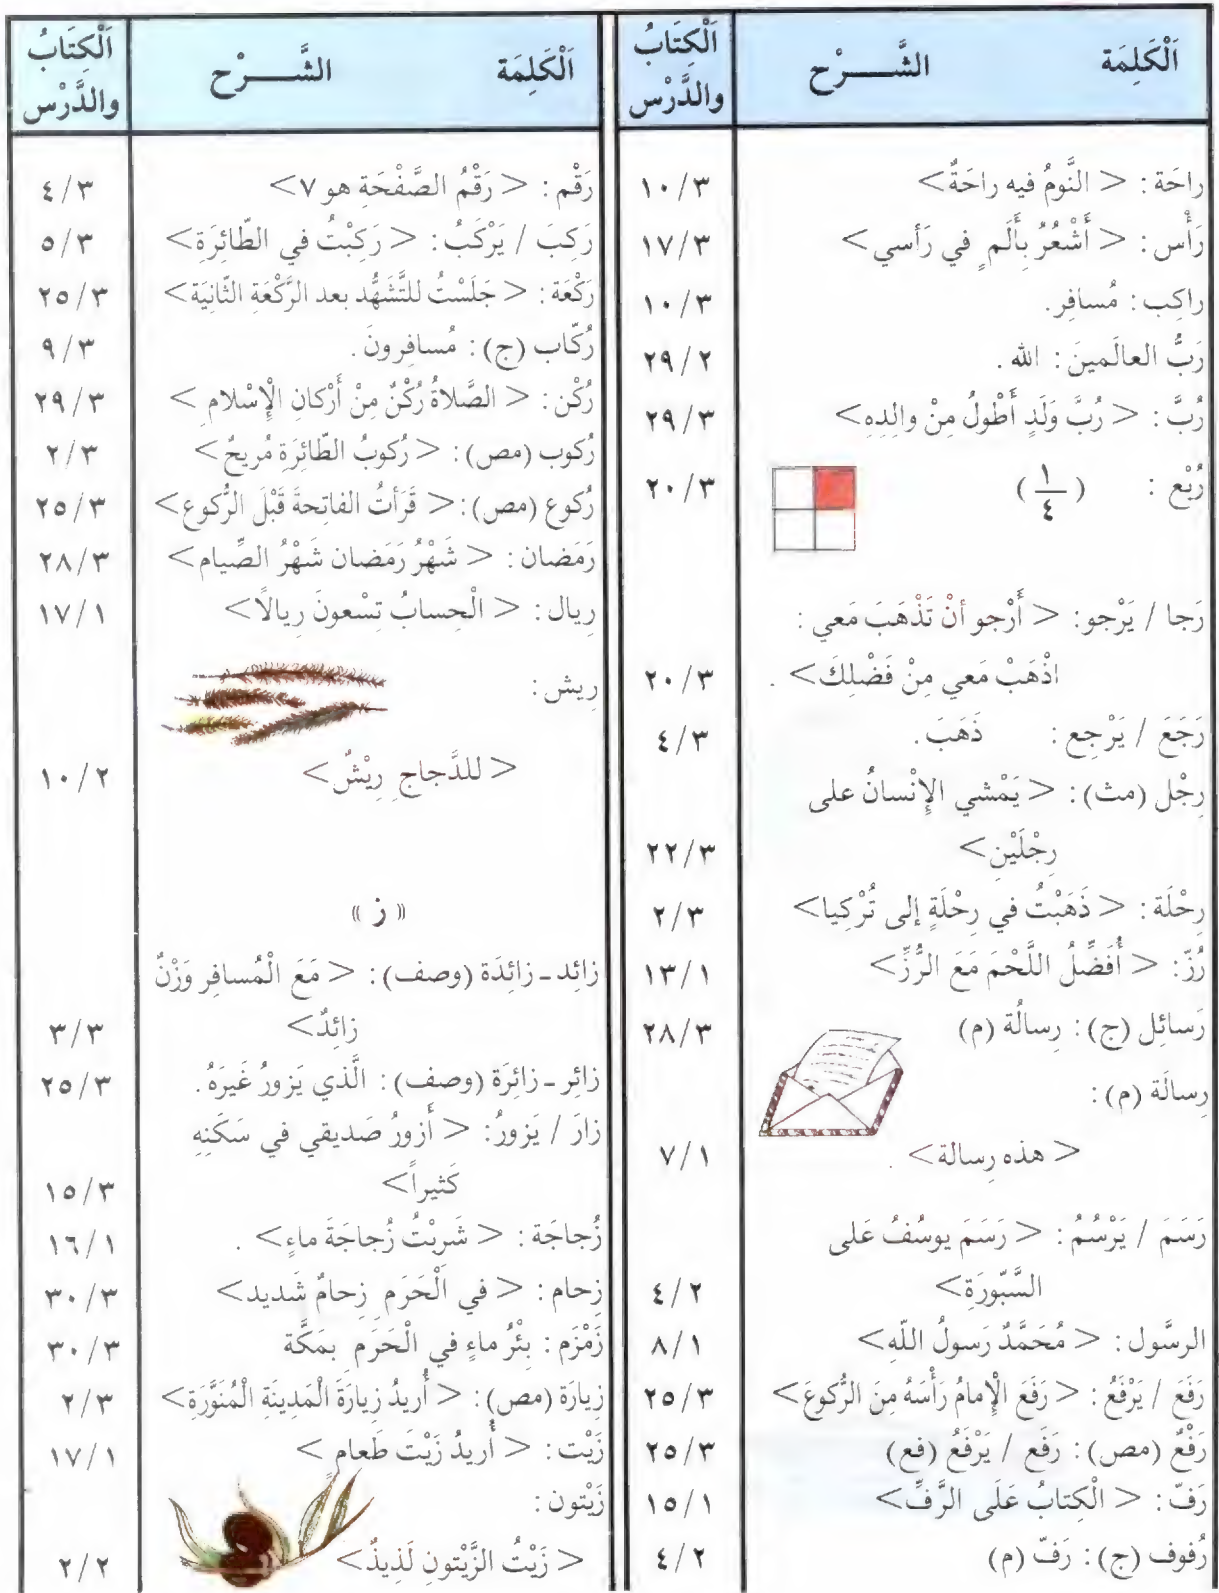 اَلْكَلِمَة الشَّـــرْح اَلْكِتَابُ والدَّرْس
راحَة : < النَّومُ فيه راحَةٌ> ١٠/٣
رَأْس : < أَشْعُرُ بِأَلَمٍ في رَأسي> ١٧/٣
راكِب : مُسافِر. ١٠/٣
رَبُّ العالَمينَ : الله . ٢٩/٢
رُبَّ : < رُبَّ وَلَدٍ أَطْولُ مِنْ والِدِهِ> ٢٩/٣
رُبْع : (١/٤) ٢٠/٣
رَجا / يَرْجو: < أَرْجو أنْ تَذْهَبَ مَعي :
اذْهَبْ مَعي مِنْ فَضْلِكَ> . ٢٠/٣
رَجَعَ / يَرْجِع : ذَهَبَ . ٤/٣
رِجْل (مث) : < يَمْشي الإِنْسانُ على
رِجْلَيْنِ> ٢٢/٣
رِحْلَة : < ذَهَبْتُ في رِحْلَةٍ إلى تُرْكِيا> ٢/٣
رُزّ: < أُفَضِّلُ اللَّحْمَ مَعَ الرُّزِّ> ١٣/١
رَسائِل (ج) : رِسالُة (م) ٢٨/٣
رِسالَة (م) :
< هذه رِسالة> . ٧/١
رَسَمَ / يَرْسُمُ : < رَسَمَ يوسُفُ عَلى
السَّبّورَةِ> ٤/٢
الرسَّول : < مُحَمَّدٌ رَسولُ اللّهِ> ٨/١
رَفَعَ / يَرْفَعُ : < رَفَعَ الْإِمامُ رَأْسَهُ مِنَ الرُّكوعَ> ٢٥/٣
رَفْعٌ (مص) : رَفَع / يَرْفَعُ (فع) ٢٥/٣
رَفّ : < الْكِتابُ عَلَى الرَّفِّ> ١٥/١
رُفوف (ج) : رَفّ (م) ٤/٢
اَلْكَلِمَة الشَّـــرْح اَلْكِتَابُ والدَّرْس
رَقْم : < رَقْمُ الصَّفْحَةِ هو ٧> ٤/٣
رَكِبَ / يَرْكَبُ : < رَكِبْتُ في الطّائِرَةِ> ٥/٣
رَكْعَة : < جَلَسْتُ للتَّشَهُّد بعد الرَّكْعَةِ الثّانِيَة> ٢٥/٣
رُكّاب (ج) : مُسافِرونَ . ٩/٣
رُكْن : < الصَّلاةُ رُكْنٌ مِنْ أَرْكان الْإِسْلامِ > ٢٩/٣
رُكوب (مص) : < رُكوبُ الطّائِرَةِ مُريحٌ> ٢/٣
رُكوع (مص) : < قَرَأتُ الفاتِحةَ قَبْلَ الرُّكوع> ٢٥/٣
رَمَضان : < شَهْرُ رَمَضان شَهْرُ الصِّيام> ٢٨/٣
رِيال : < الْحِسابُ تِسْعونَ رِيالًا> ١٧/١
رِيش :
< للدَّجاجِ رِيْشٌ> ١٠/٢
« ز »
زائِد ـ زائِدَة (وصف) : < مَعَ الْمُسافِر وَزْنٌ
زائِدٌ> ٣/٣
زائِر ـ زائِرَة (وصف) : الَّذي يَزورُ غَيرَهُ . ٢٥/٣
زارَ / يَزورُ: < أَزورُ صَديقي في سَكَنِهِ
كَثيراً> ١٥/٣
زُجاجَة : < شَرِبْتُ زُجاجَةَ ماءٍ> . ١٦/١
زِحام : < في الْحَرَمِ زِحامٌ شَديد> ٣٠/٣
زَمْزَم : بِئْرُ ماءٍ في الْحَرَمِ بمَكَّة ٣٠/٣
زِيارَة (مص) : < أُريدُ زِيارَةَ الْمَدِينَةِ الْمُنَوَّرَةِ> ٢/٣
زَيْت : < أُريدُ زَيْتَ طَعامٍ > ١٧/١
زَيْتون :
< زَيْتُ الزَّيْتونِ لَذِيذٌ> ٢/٢